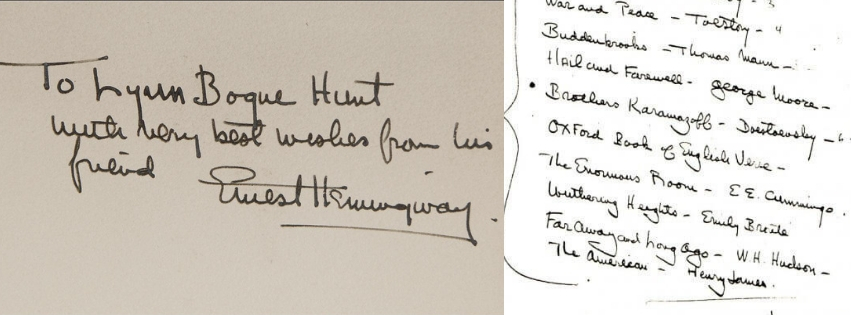 To Lynn Bogue Hunt
with very best wishes from his
friend
Ernest Hemingway.
War and Peace - Tolstoy -
Buddenbrooks - Thomas Mann -
Hail and Farewell - George Moore -
• Brothers Karamazoff - Dostoevsky -
Oxford Book of English Verse -
The Enormous Room - E.E. Cummings.
Wuthering Heights - Emily Bronte
Far Away and Long Ago - W.H. Hudson -
The American - Henry James.